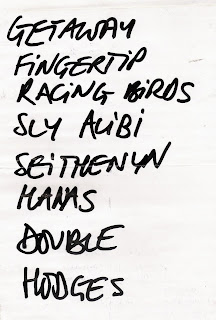 GETAWAY
FINGERTIP
RACING BIRDS
SLY ALIBI
SEITHENYN
HAAAS
DOUBLE
HODGES